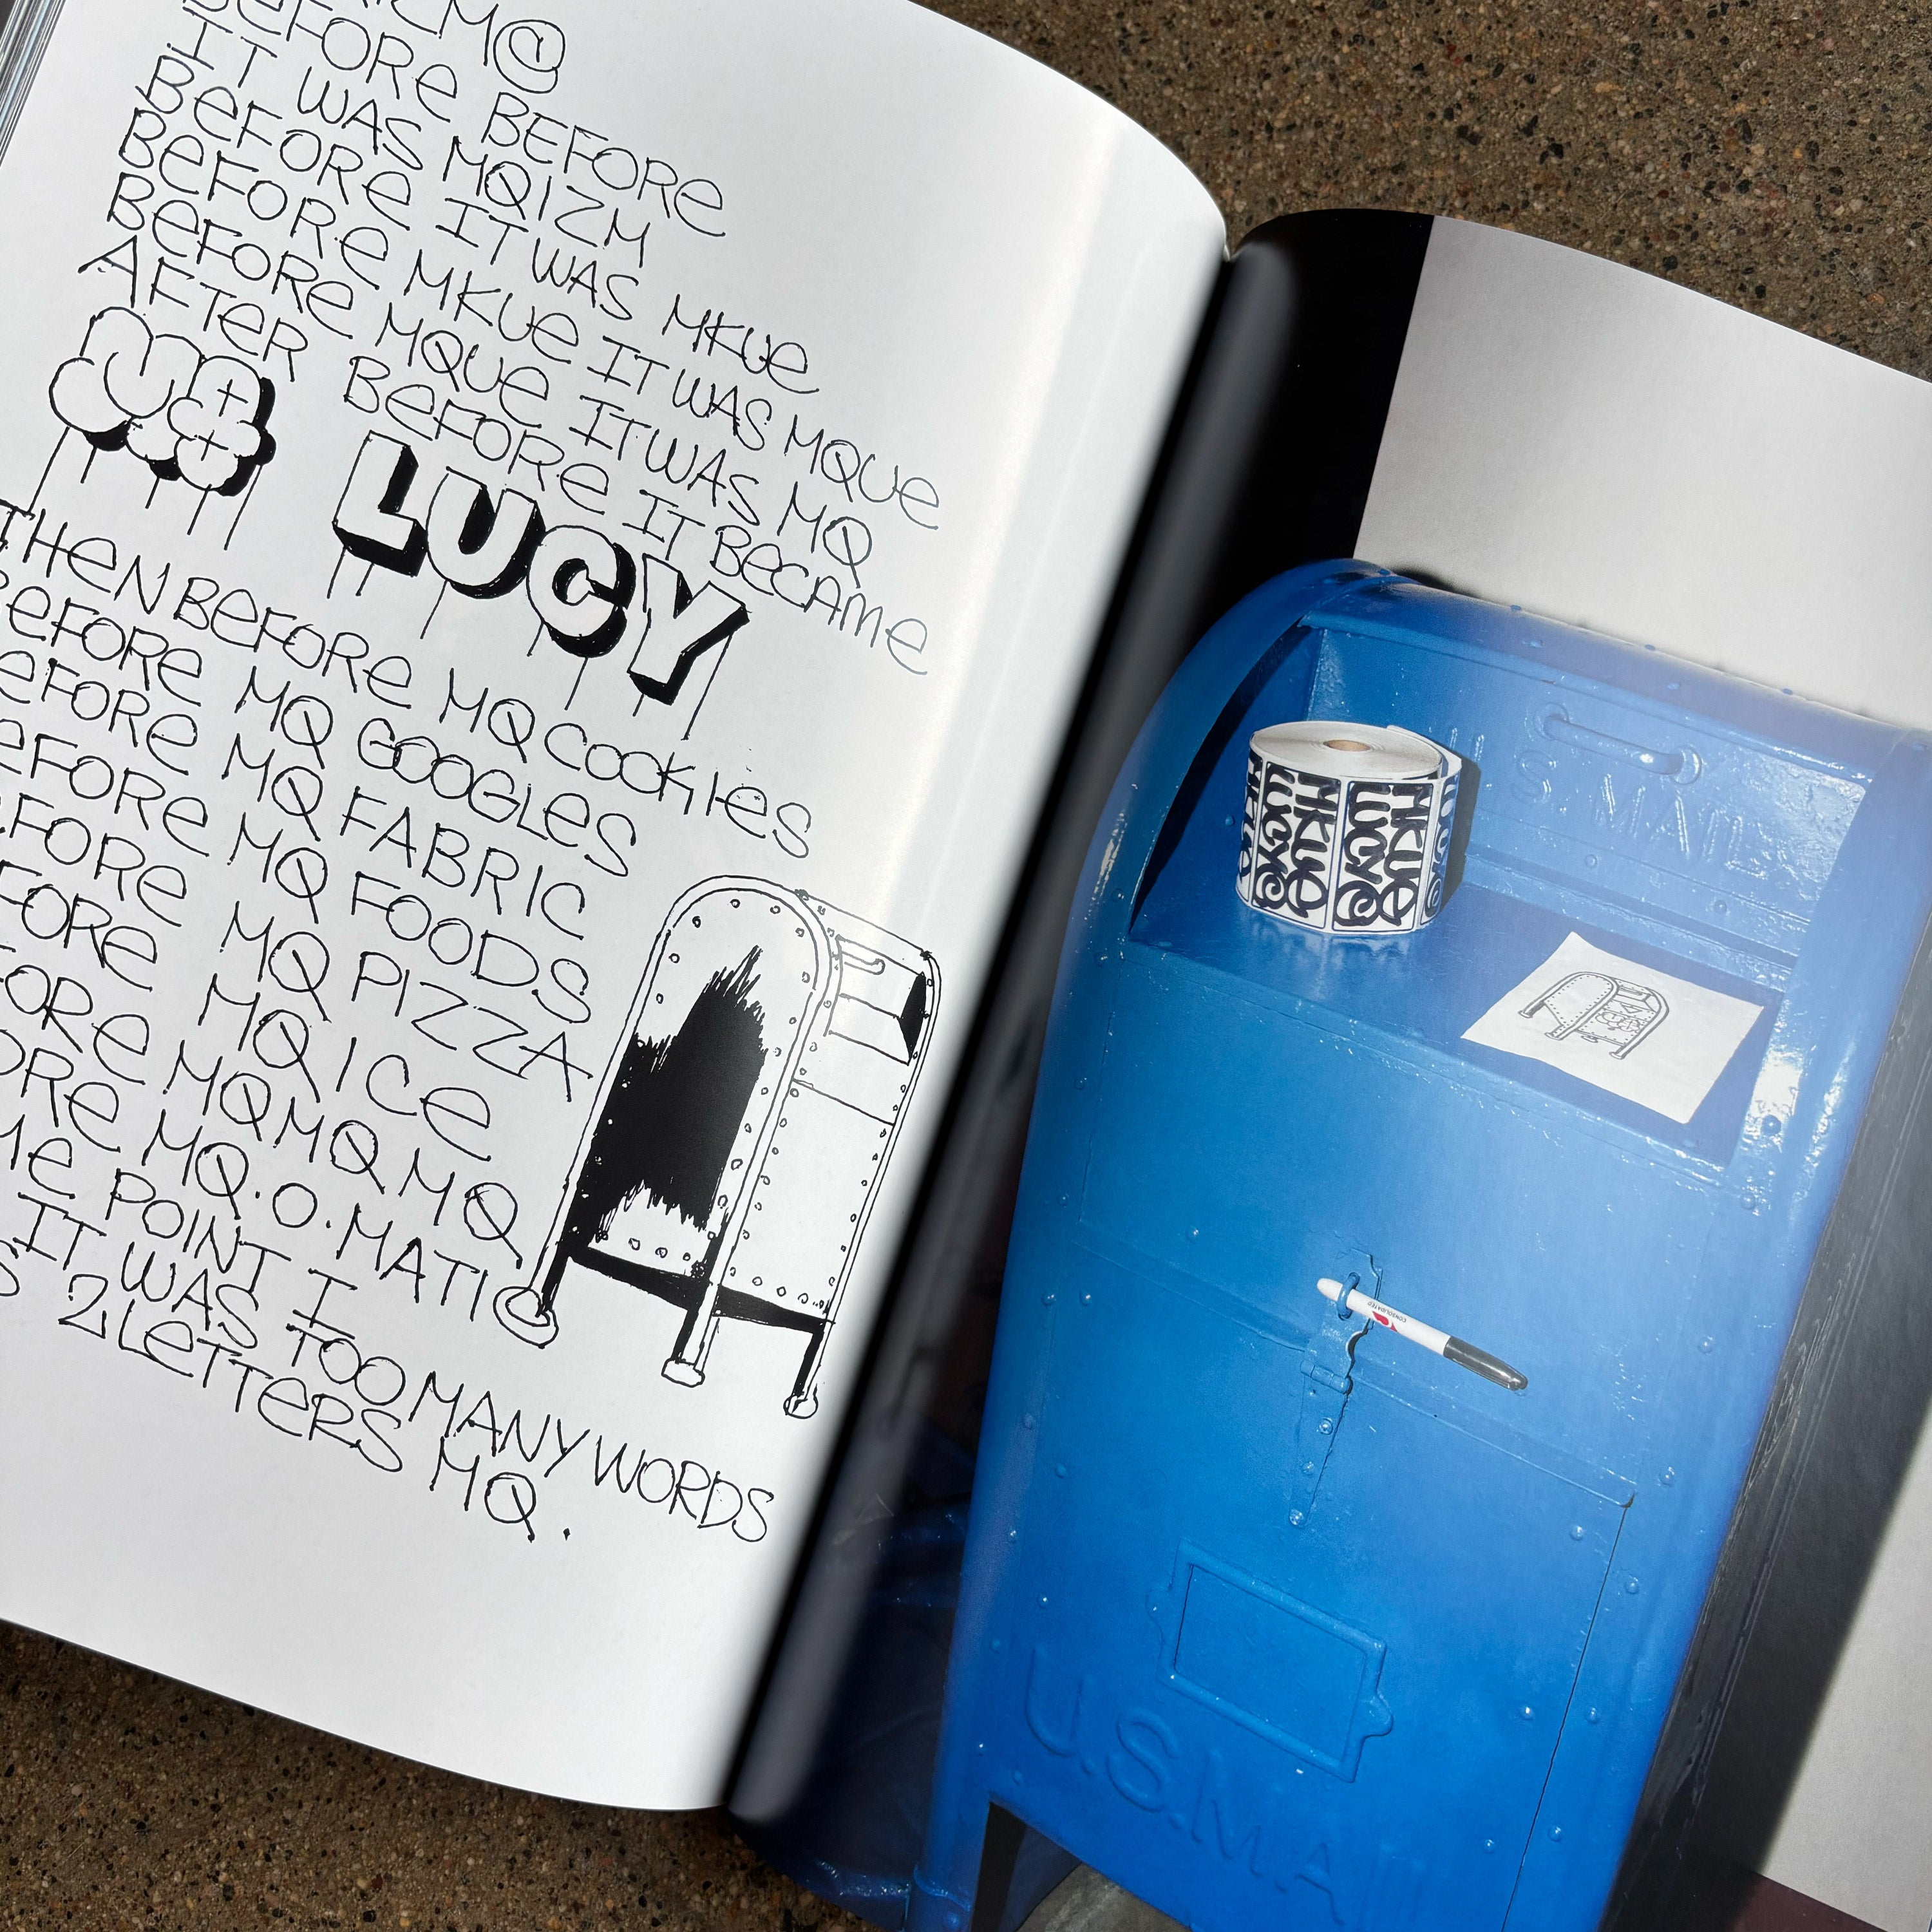 BEFORE BEFORE
IT WAS MQIZM
BEFORE IT WAS MKUE
BEFORE MKUE IT WAS MQUE
BEFORE MQUE IT WAS MQ
AFTER BEFORE IT BECAME
LUCY
THEN BEFORE MQ COOKIES
BEFORE MQ GOOGLES
BEFORE MQ FABRIC
BEFORE MQ FOODS
BEFORE MQ PIZZA
FORE MQ ICE
FORE MQMQMQ
ORE MQ.O.MATIC
ME POINT I
IT WAS TOO MANY WORDS
S 2 LETTERS MQ.
U.S. MAIL
MKUE
LUCY
MKUE
LUCY
CONSOLIDATED
U.S.MAIL